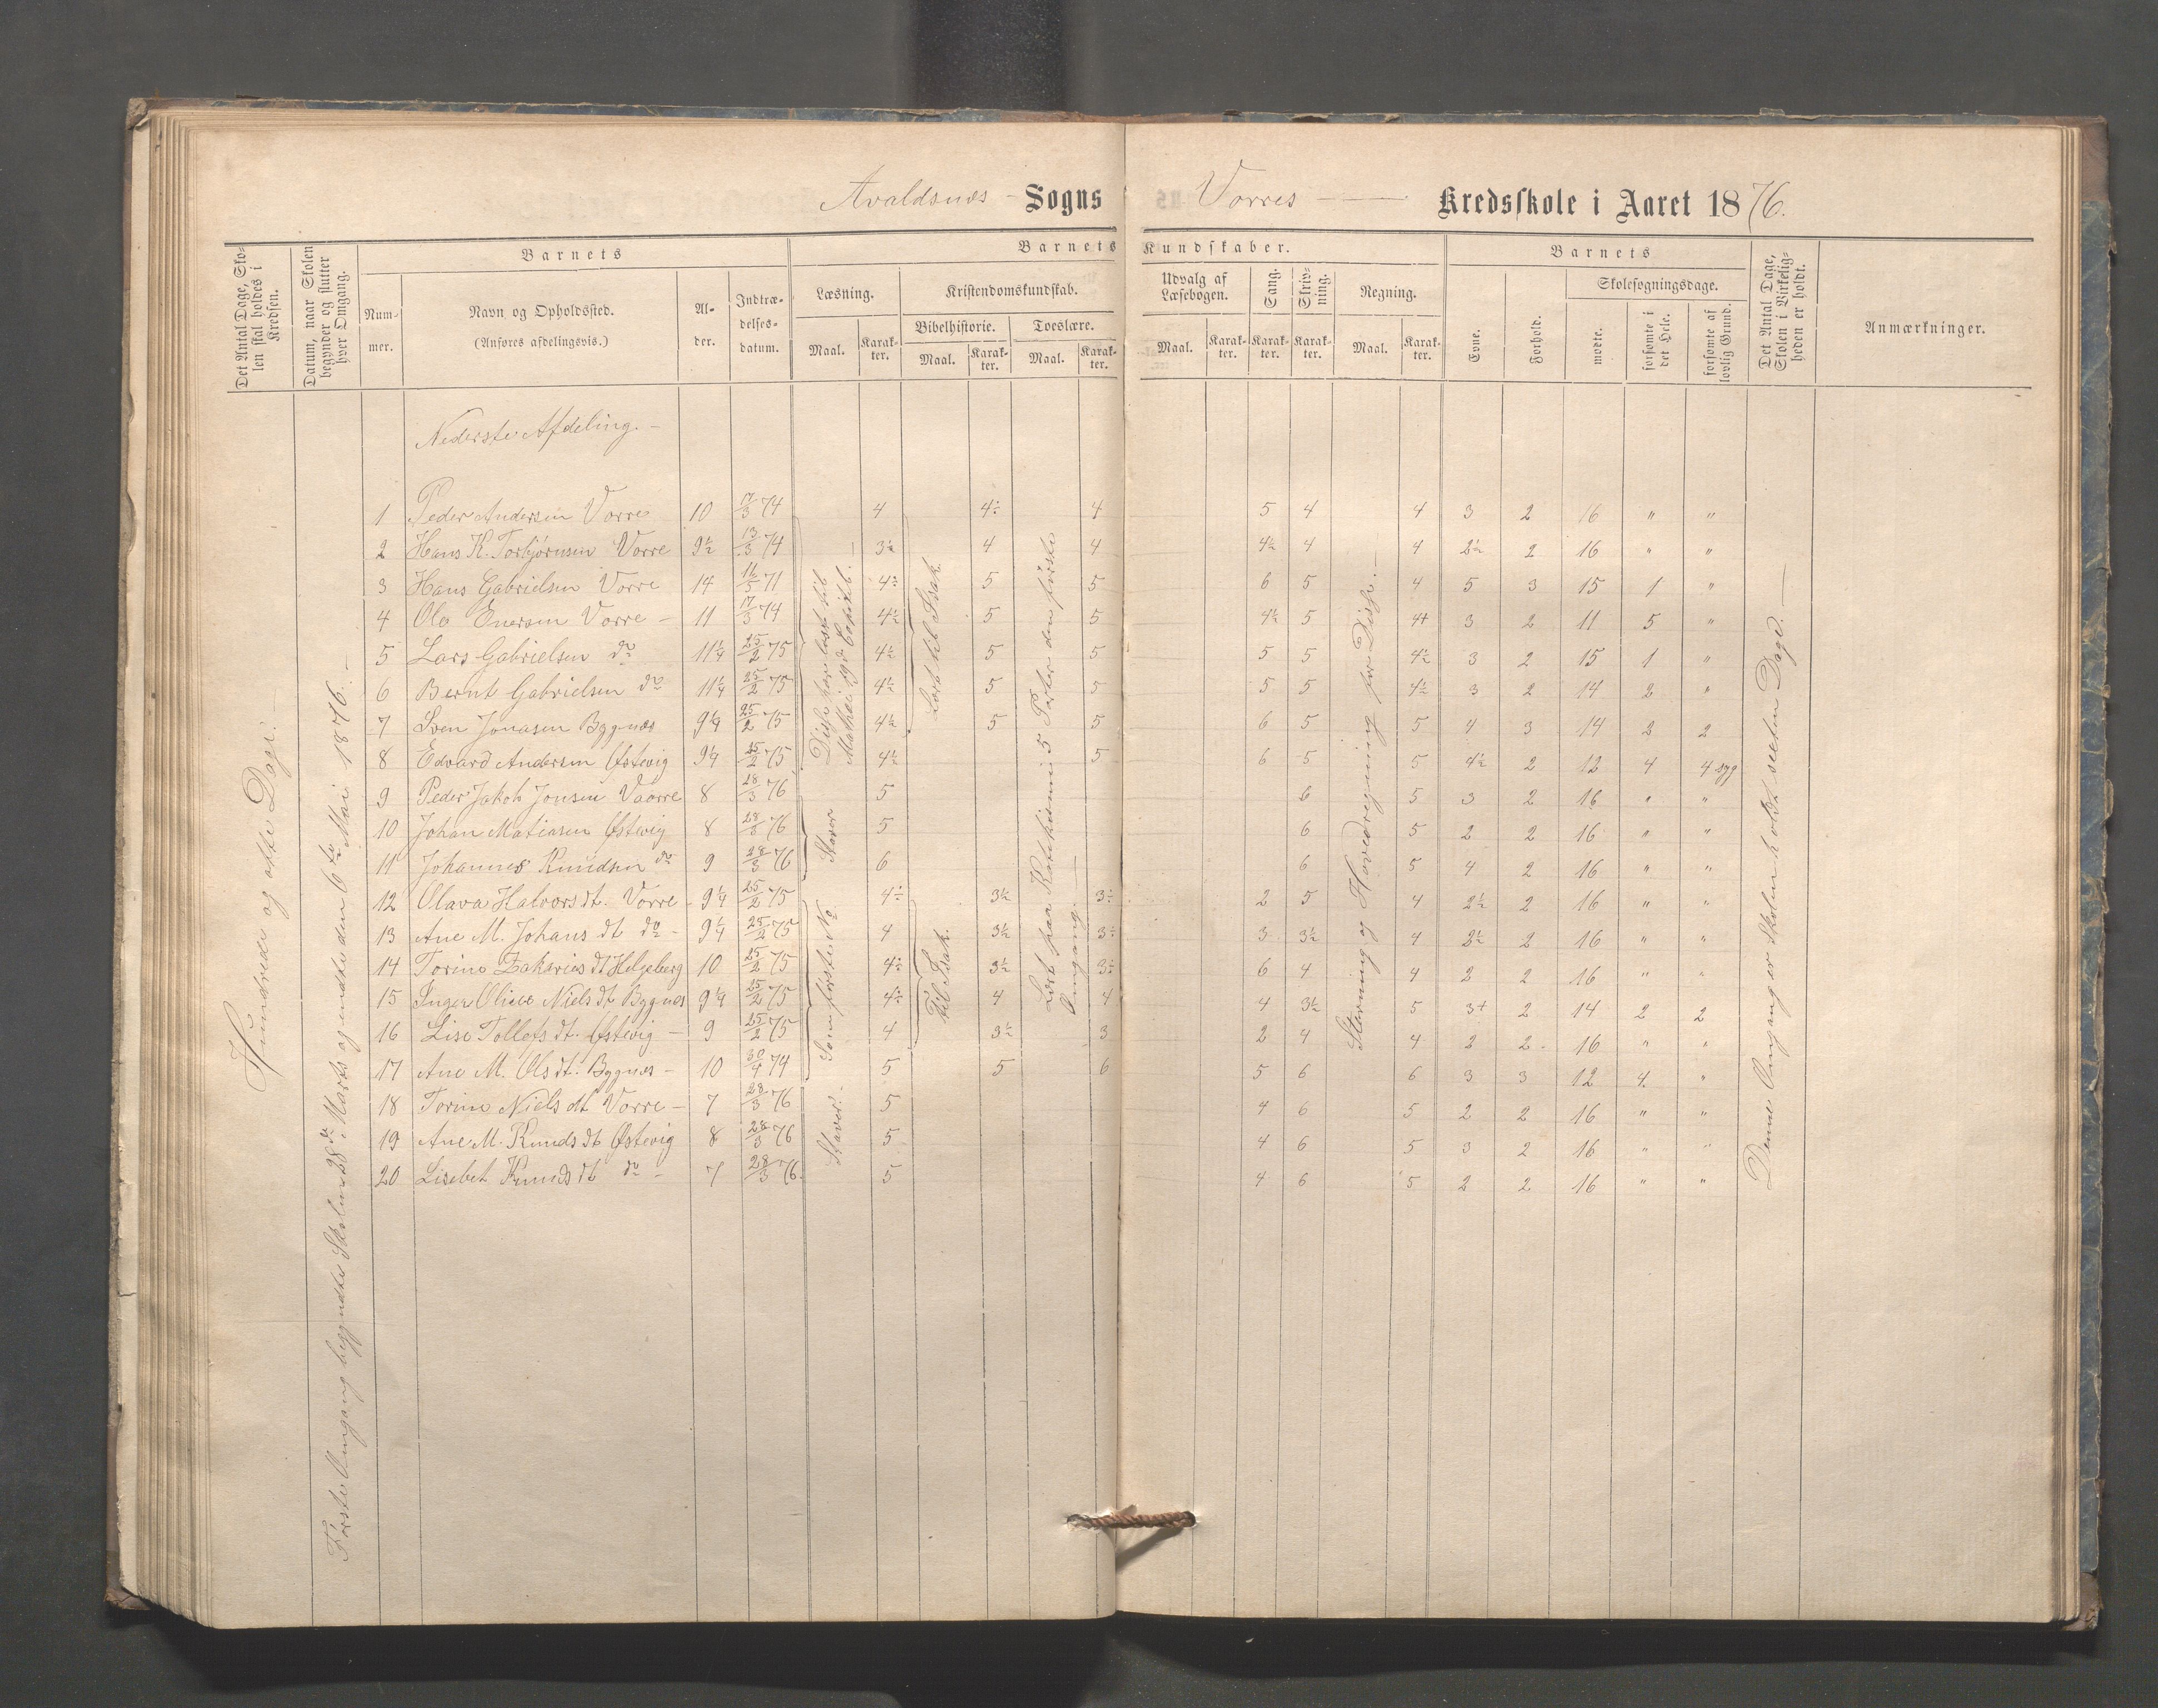 Avaldsnes - Sogns Vorres - Kredsskole i Aaret 1876.
Det Antal Dage, Skolen skal holdes i Kredsen.
Datum, naar Skolen begynder og slutter hver Omgang.
Barnets
Nummer.
Navn og Opholdssted.
(Anføres afdelingsvis.)
Alder.
Indtrædelsesdatum.
Barnets Kundskaber.
Læsning.
Maal.
Karakter.
Kristendomskundskab.
Bibelhistorie.
Maal.
Karakter.
Troeslære.
Maal.
Karakter.
Udvalg af Læsebogen.
Maal.
Karakter.
Sang.
Karakter.
Skrivning.
Karakter.
Regning.
Maal.
Karakter.
Barnets
Evne.
Forhold.
Skolesøgningsdage.
mødte.
forsømte i det Hele.
forsømte af lovlig Grund.
Det Antal Dage, Skolen i Virkeligheden er holdt.
Anmærkninger.
Hundrede og otte Dage. -
Første Omgang begyndte Skolen 28de Marts og endte den 6te Mai 1876. -
Nederste Afdeling. -
1 Peder Andersen Vorre 10 17/3 74 4 4÷ 4 5 4 4 3 2 16 " "
2 Hans K. Torbjørnsen Vorre 9½ 13/3 74 3½ 4 4 4½ 4 4 2½ 2 16 " "
3 Hans Gabrielsen Vorre 14 11/5 71 4÷ 5 5 6 5 4 5 3 15 1 "
4 Ole Enersen Vorre - 11 17/3 74 4½ 5 5 4½ 5 4+ 3 2 11 5 "
5 Lars Gabrielsen do 11¼ 25/2 75 4½ 5 5 5 5 4½ 3 2 15 1 "
6 Bernt Gabrielsen do 11¼ 25/2 75 4½ 5 5 5 5 4½ 3 2 14 2 "
7 Sven Jonasen Bygnæs 9¼ 25/2 75 4½ 5 5 6 5 5 4 3 14 2 2
8 Edvard Andersen Østevig 9¼ 25/2 75 4½ 5 6 5 5 4½ 2 12 4 4 syg
9 Peder Jakob Jonsen Vaarre 8 28/3 76 5 6 5 3 2 16 " "
10 Johan Matiasen Østevig 8 28/3 76 5 6 5 2 2 16 " "
11 Johannes Knudsen do 9 28/3 76 6 6 5 4 2 16 " "
12 Olava Halvorsdt. Vorre 9¼ 25/2 75 4÷ 3½ 3÷ 2 5 4 2½ 2 16 " "
13 Ane M. Johans dt do - 9¼ 25/2 75 4 3½ 3÷ 3 3½ 4 2½ 2 16 " "
14 Torine Zakarias dt Helgeberg 10 25/2 75 4÷ 3½ 3÷ 6 4 4 2 2 16 " "
15 Inger Oline Niels dt Bygnæs 9¼ 25/2 75 4÷ 4 4 4 3½ 5 3+ 2 14 2 2
16 Lise Tollefs dt. Østevig - 9 25/2 75 4 3½ 3 2 4 4 2 2 16 " "
17 Ane M. Ols dt. Bygnæs - 10 30/4 74 5 5 6 5 6 6 3 3 12 4 "
18 Torine Niels dt Vorre - 7 28/3 76 5 4 6 5 2 2 16 " "
19 Ane M. Knuds dt Østevig 8 28/3 76 5 4 6 5 3 2 16 " "
20 Lisebet Knuds dt do - 7 28/3 76 5 4 6 5 2 2 16 " "
Disse have læst til Mathæi Capitl.
Staver
Som første No
Staver.
Læst til Isak.
til Isak.
Læst paa Katekismi 5 Parter den første Omgang. -
Skrivning og Hovedregning for Disse. -
Denne Omgang er Skolen holdt sexten Dage. -